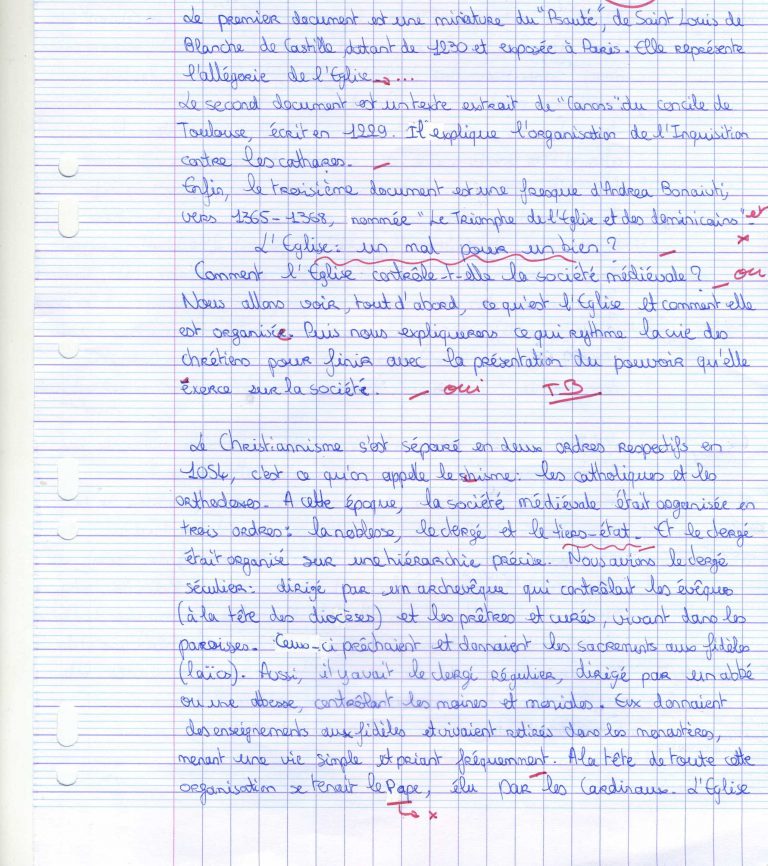 Le premier document est une miniature du "Psauté", de Saint Louis de
Blanche de Castille datant de 1230 et exposée à Paris. Elle représente
l'allégorie de l'Eglise → ...
Le second document est un texte extrait de "Canons" du concile de
Toulouse, écrit en 1229. Il explique l'organisation de l'Inquisition
contre les cathares.
Enfin, le troisième document est une fresque d'Andrea Bonaiuti,
vers 1365-1368, nommée "Le Triomphe de l'Eglise et des dominicains" et
x
L'Eglise : un mal pour un bien ?
Comment l'Eglise contrôle-t-elle la société médiévale ? oui
Nous allons voir, tout d'abord, ce qu'est l'Eglise et comment elle
est organisée. Puis nous expliquerons ce qui rythme la vie des
chrétiens pour finir avec la présentation du pouvoir qu'elle
exerce sur la société. oui TB
Le Christiannisme s'est séparé en deux ordres respectifs en
1054, c'est ce qu'on appelle le shisme : les catholiques et les
orthodoxes. A cette époque, la société médiévale était organisée en
trois ordres : la noblesse, le clergé et le tiers-état. Et le clergé
était organisé sur une hiérarchie précise. Nous avions le clergé
séculier : dirigé par un archevêque qui contrôlait les évêques
(à la tête des diocèses) et les prêtres et curés, vivant dans les
paroisses. Ceux-ci prêchaient et donnaient les sacrements aux fidèles
(laïcs). Aussi, il y avait le clergé régulier, dirigé par un abbé
ou une abesse, contrôlant les moines et moniales. Eux donnaient
des enseignements aux fidèles et vivaient retirés dans les monastères,
menant une vie simple et priant fréquemment. A la tête de toute cette
organisation se tenait le Pape, élu par les Cardinaux. L'Eglise
x